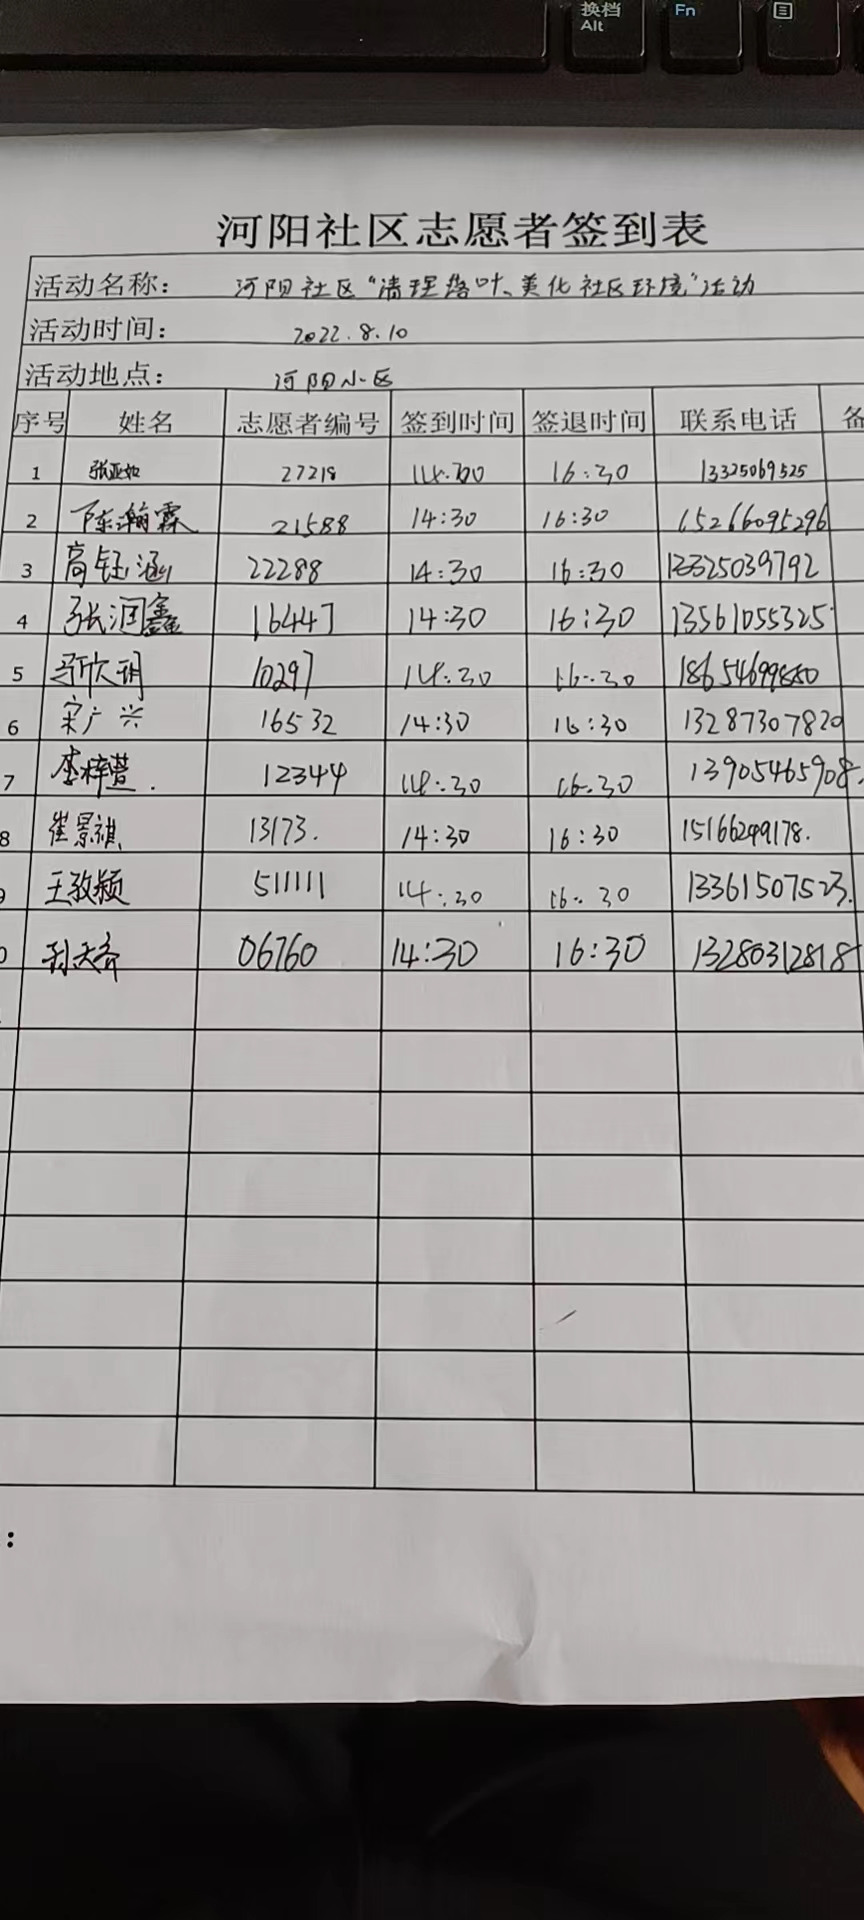 换档
Alt
Fn
河阳社区志愿者签到表
活动名称： 河阳社区“清理落叶、美化社区环境”活动
活动时间： 2022.8.10
活动地点： 河阳小区
序号 姓名 志愿者编号 签到时间 签退时间 联系电话 备
1 张亚如 27218 16:30 13325069525
2 陈瀚霖 21588 14:30 16:30 15266095296
3 高钰涵 22288 14:30 16:30 13325039792
4 张润鑫 16447 14:30 16:30 13561055325
5 10297 14:30 16:30
6 宋广兴 16532 14:30 16:30 13287307820
7 李梓萱. 12344 14:30 16:30 13905465908.
8 崔景祺 13173. 14:30 16:30 15166249178.
9 王致颖 511111 14:30 16:30 13361507523.
0 天齐 06760 14:30 16:30 13280312818
: